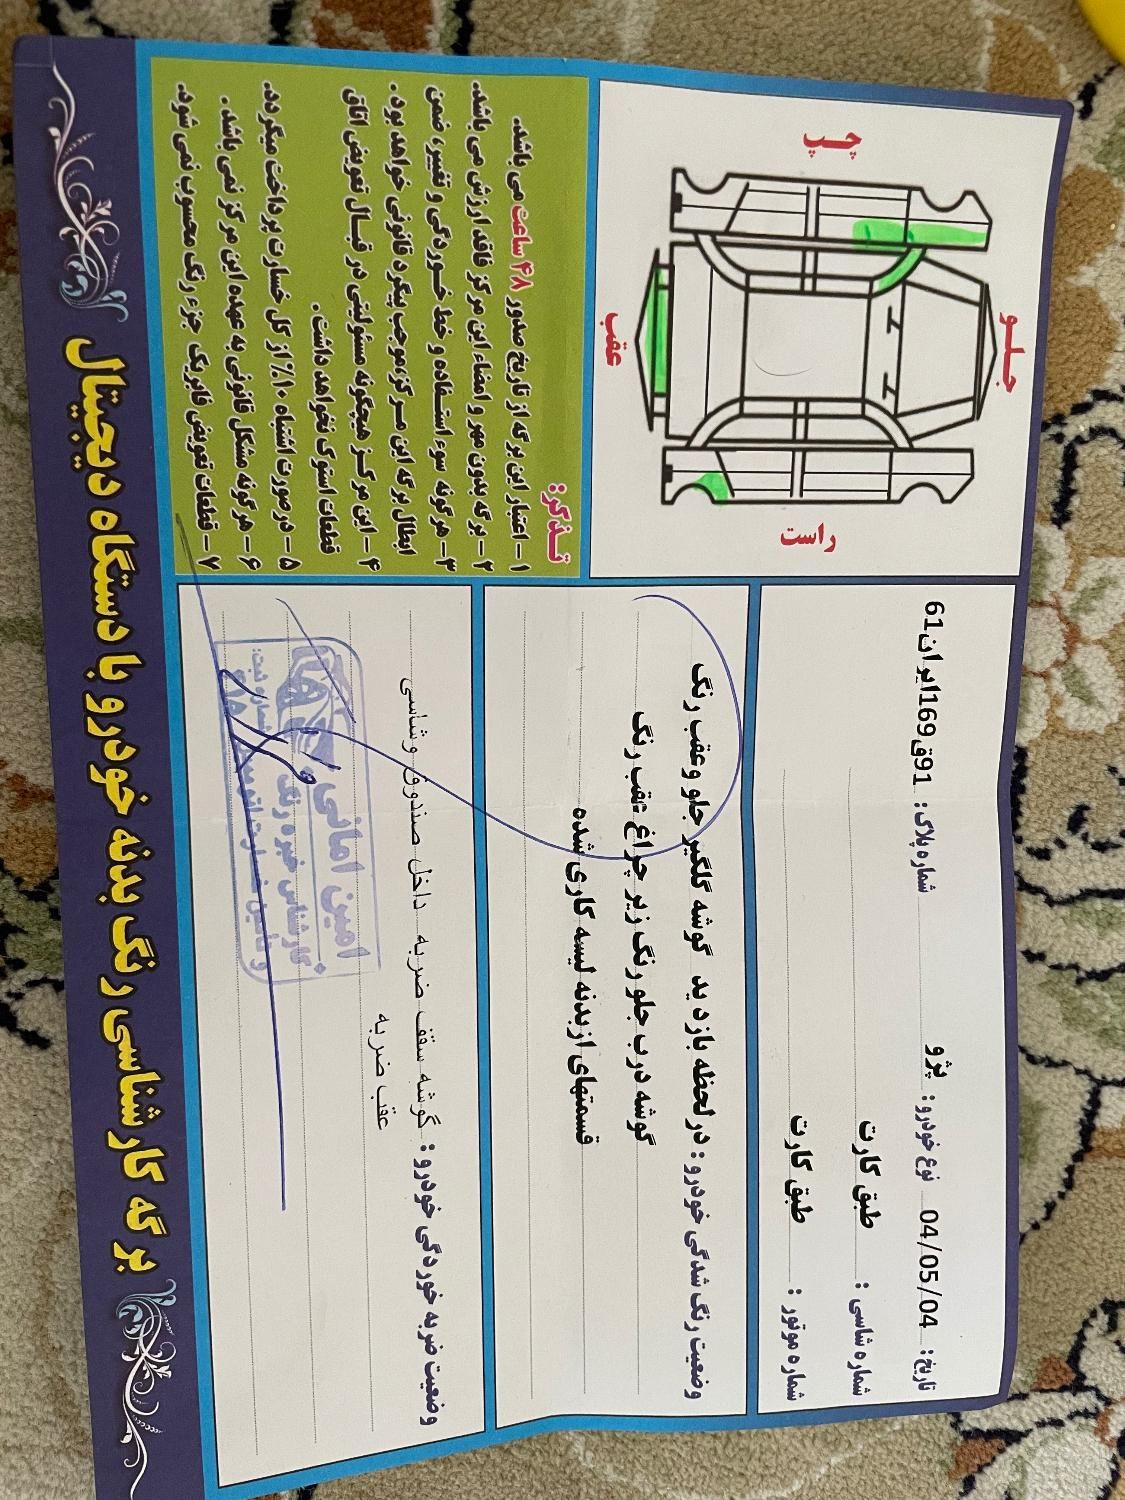 برگه کارشناسی رنگ بدنه خودرو با دستگاه دیجیتال
تاریخ: 04/05/04 نوع خودرو: پژو شماره پلاک: 91ق169ایران61
شماره شاسی: طبق کارت
شماره موتور: طبق کارت
وضعیت رنگ شدگی خودرو: در لحظه بازدید گوشه گلگیر جلو و عقب رنگ
گوشه درب جلو رنگ زیر چراغ عقب رنگ
قسمتهای از بدنه لیسه کاری شده
وضعیت ضربه خوردگی خودرو: گوشه سقف ضربه داخل صندوق و شاسی
عقب ضربه
امین امانی
کارشناس خبره رنگ
چپ
جلو
عقب
راست
تذکر:
۱- اعتبار این برگه از تاریخ صدور ۴۸ ساعت می باشد.
۲- برگه بدون مهر و امضاء این مرکز فاقد ارزش می باشد.
۳- هرگونه سوء استفاده و خط خوردگی و تغییر، ضمن
ابطال برگه این مرکز، موجب پیگرد قانونی خواهد بود.
۴- این مرکز هیچگونه مسئولیتی در قبال تعویض اتاق
قطعات استوک نخواهد داشت.
۵- در صورت اشتباه ۱۰٪ از کل خسارت پرداخت میگردد.
۶- هرگونه مشکل قانونی به عهده این مرکز نمی باشد.
۷- قطعات تعویض فابریک جزء رنگ محسوب نمی شود.